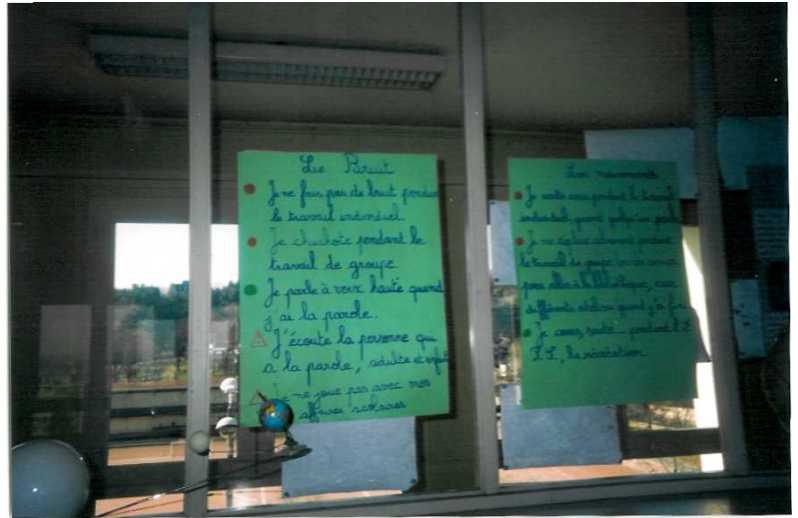 Le Bruit
Je ne fais pas de bruit pendant
le travail individuel.
Je chuchote pendant le
travail de groupe.
Je parle à voix haute quand
j'ai la parole.
J'écoute la personne qui
a la parole, adulte et enfant
Je ne joue pas avec mes
affaires scolaires
Les mouvements
Je reste assis pendant le travail
individuel, quand quelqu'un parle
Je me déplace calmement pendant
le travail de groupe
pour aller à
différents ateliers quand j'ai fini
Je cours, saute pendant l'E
P.S., la récréation